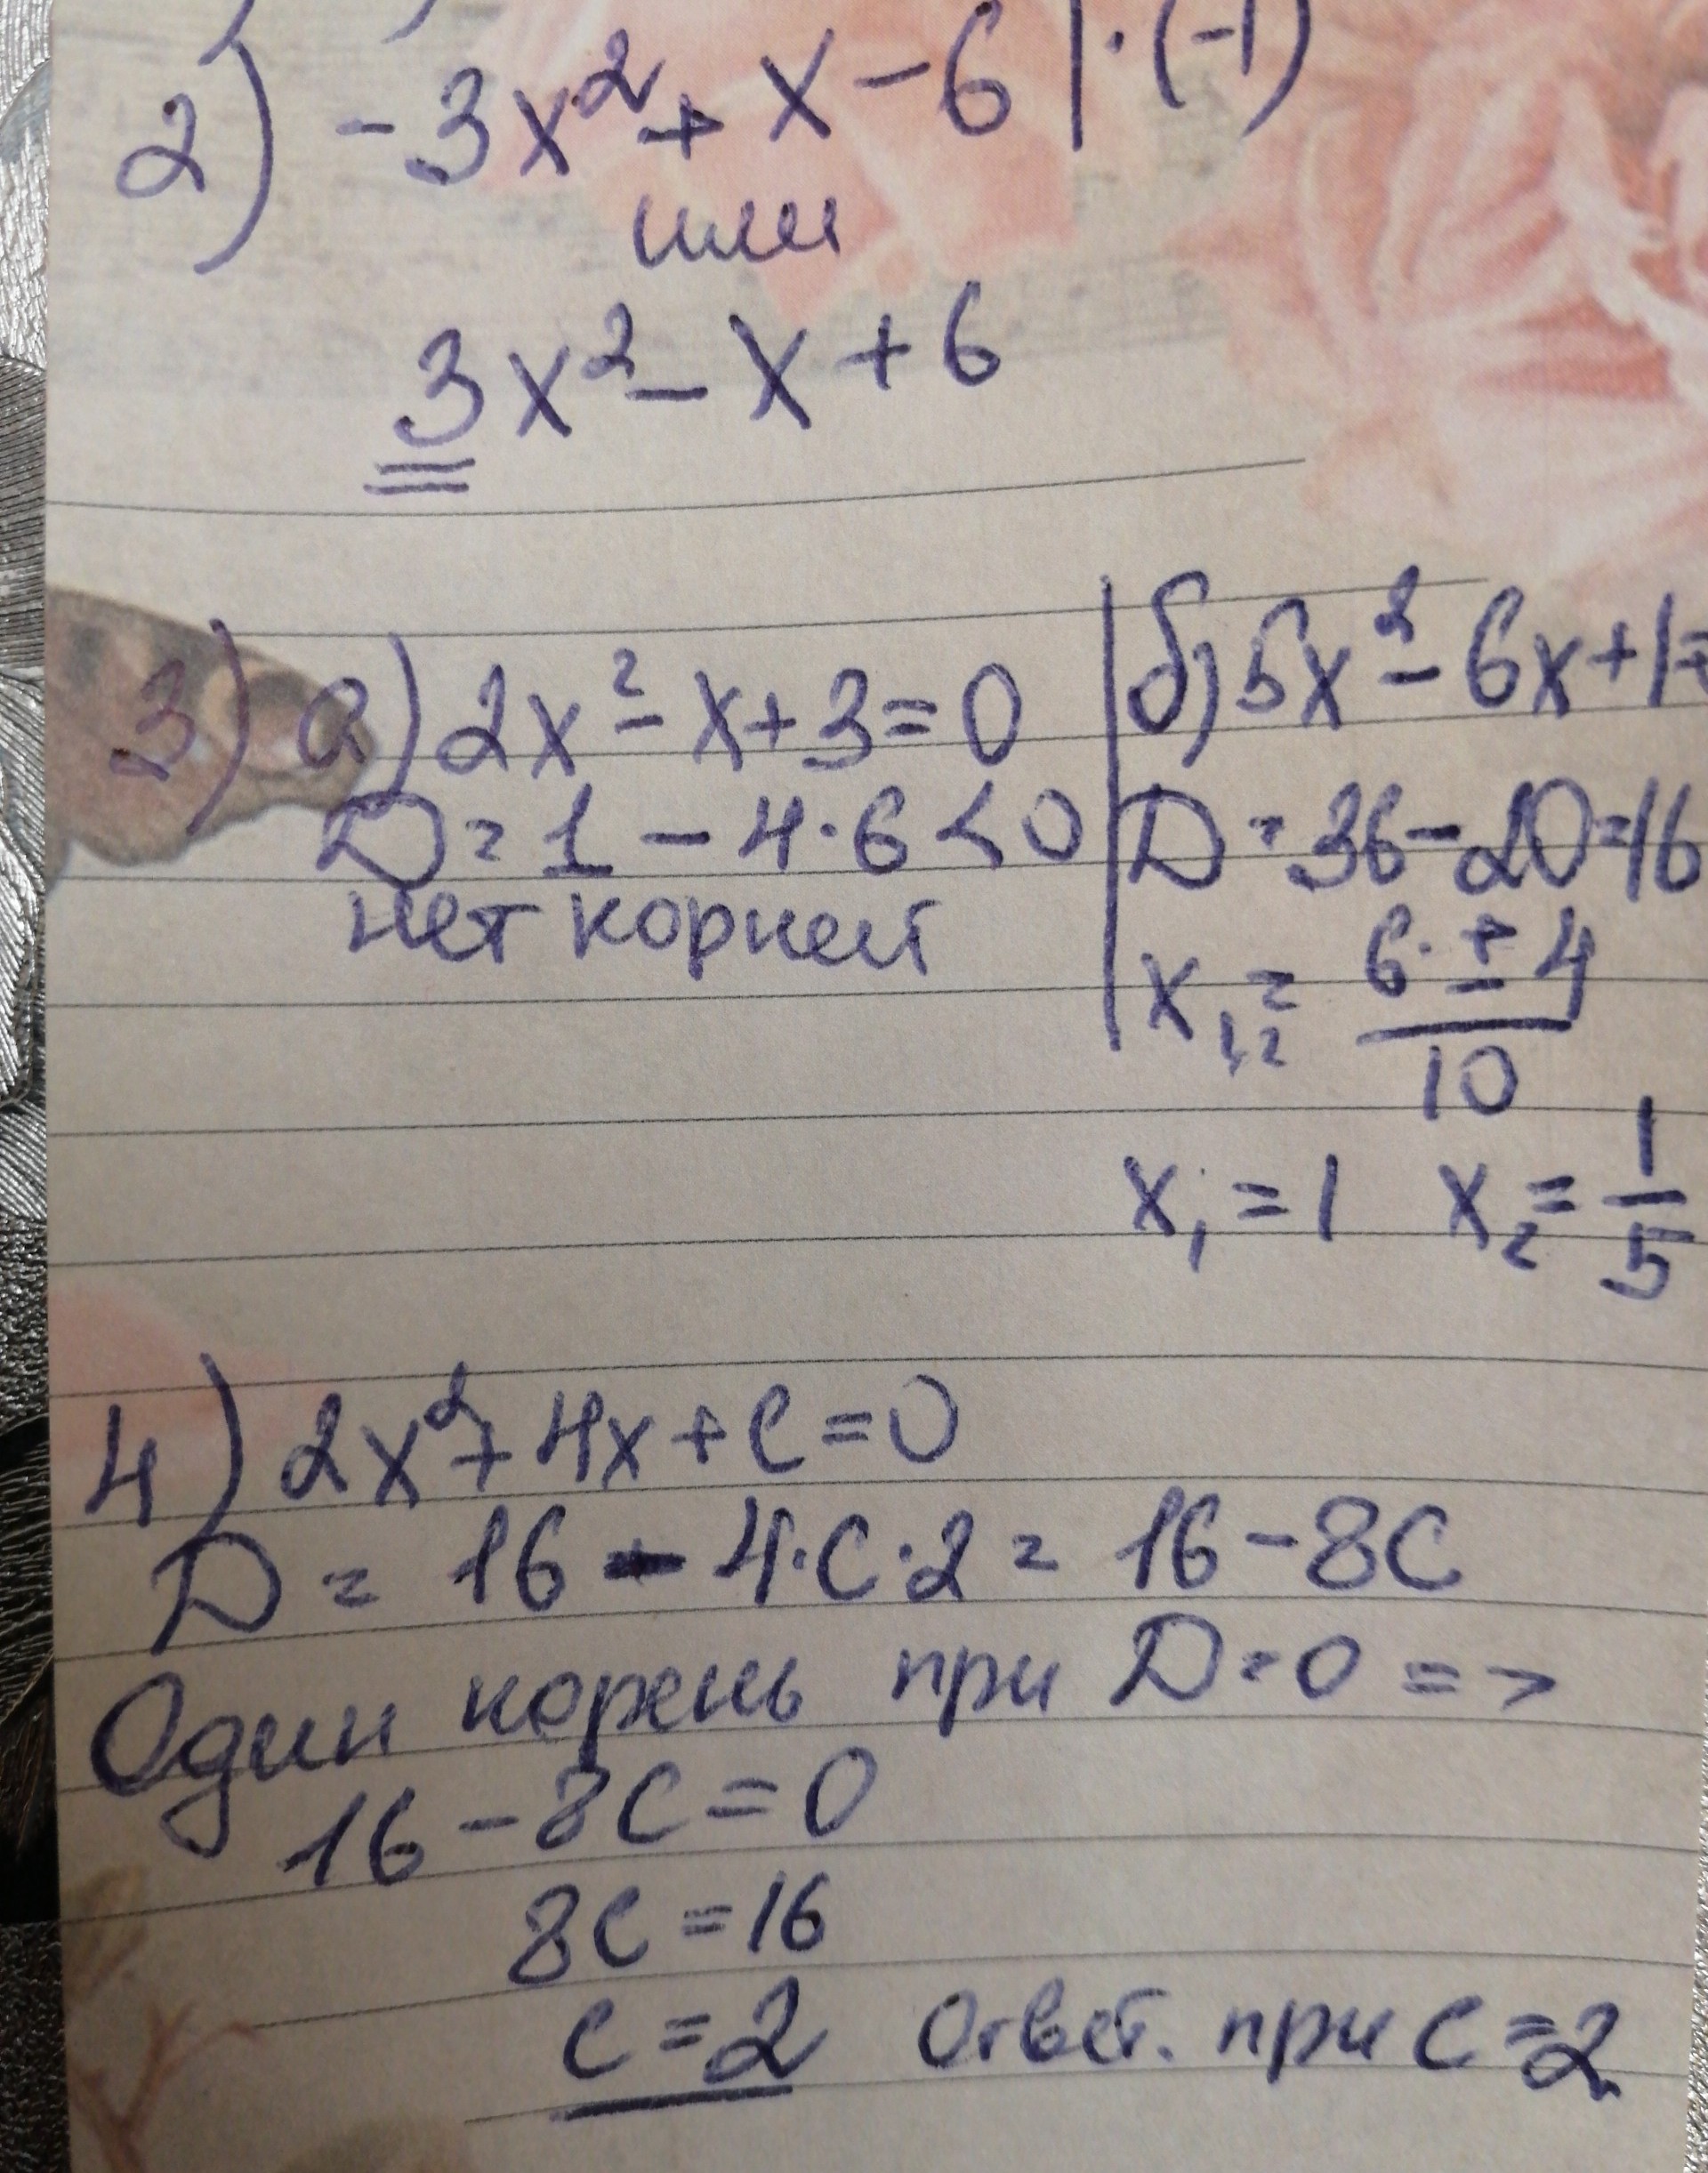 2) -3x² + x - 6 | · (-1)
или
3x² - x + 6
3) а) 2x² - x + 3 = 0
D = 1 - 4·6 < 0
нет корней
б) 5x² - 6x + 1 =
D = 36 - 20 = 16
x₁,₂ = (6 ± 4)/10
x₁ = 1 x₂ = 1/5
4) 2x² + 4x + c = 0
D = 16 - 4·c·2 = 16 - 8c
Один корень при D = 0 =>
16 - 8c = 0
8c = 16
c = 2 Ответ. при c = 2